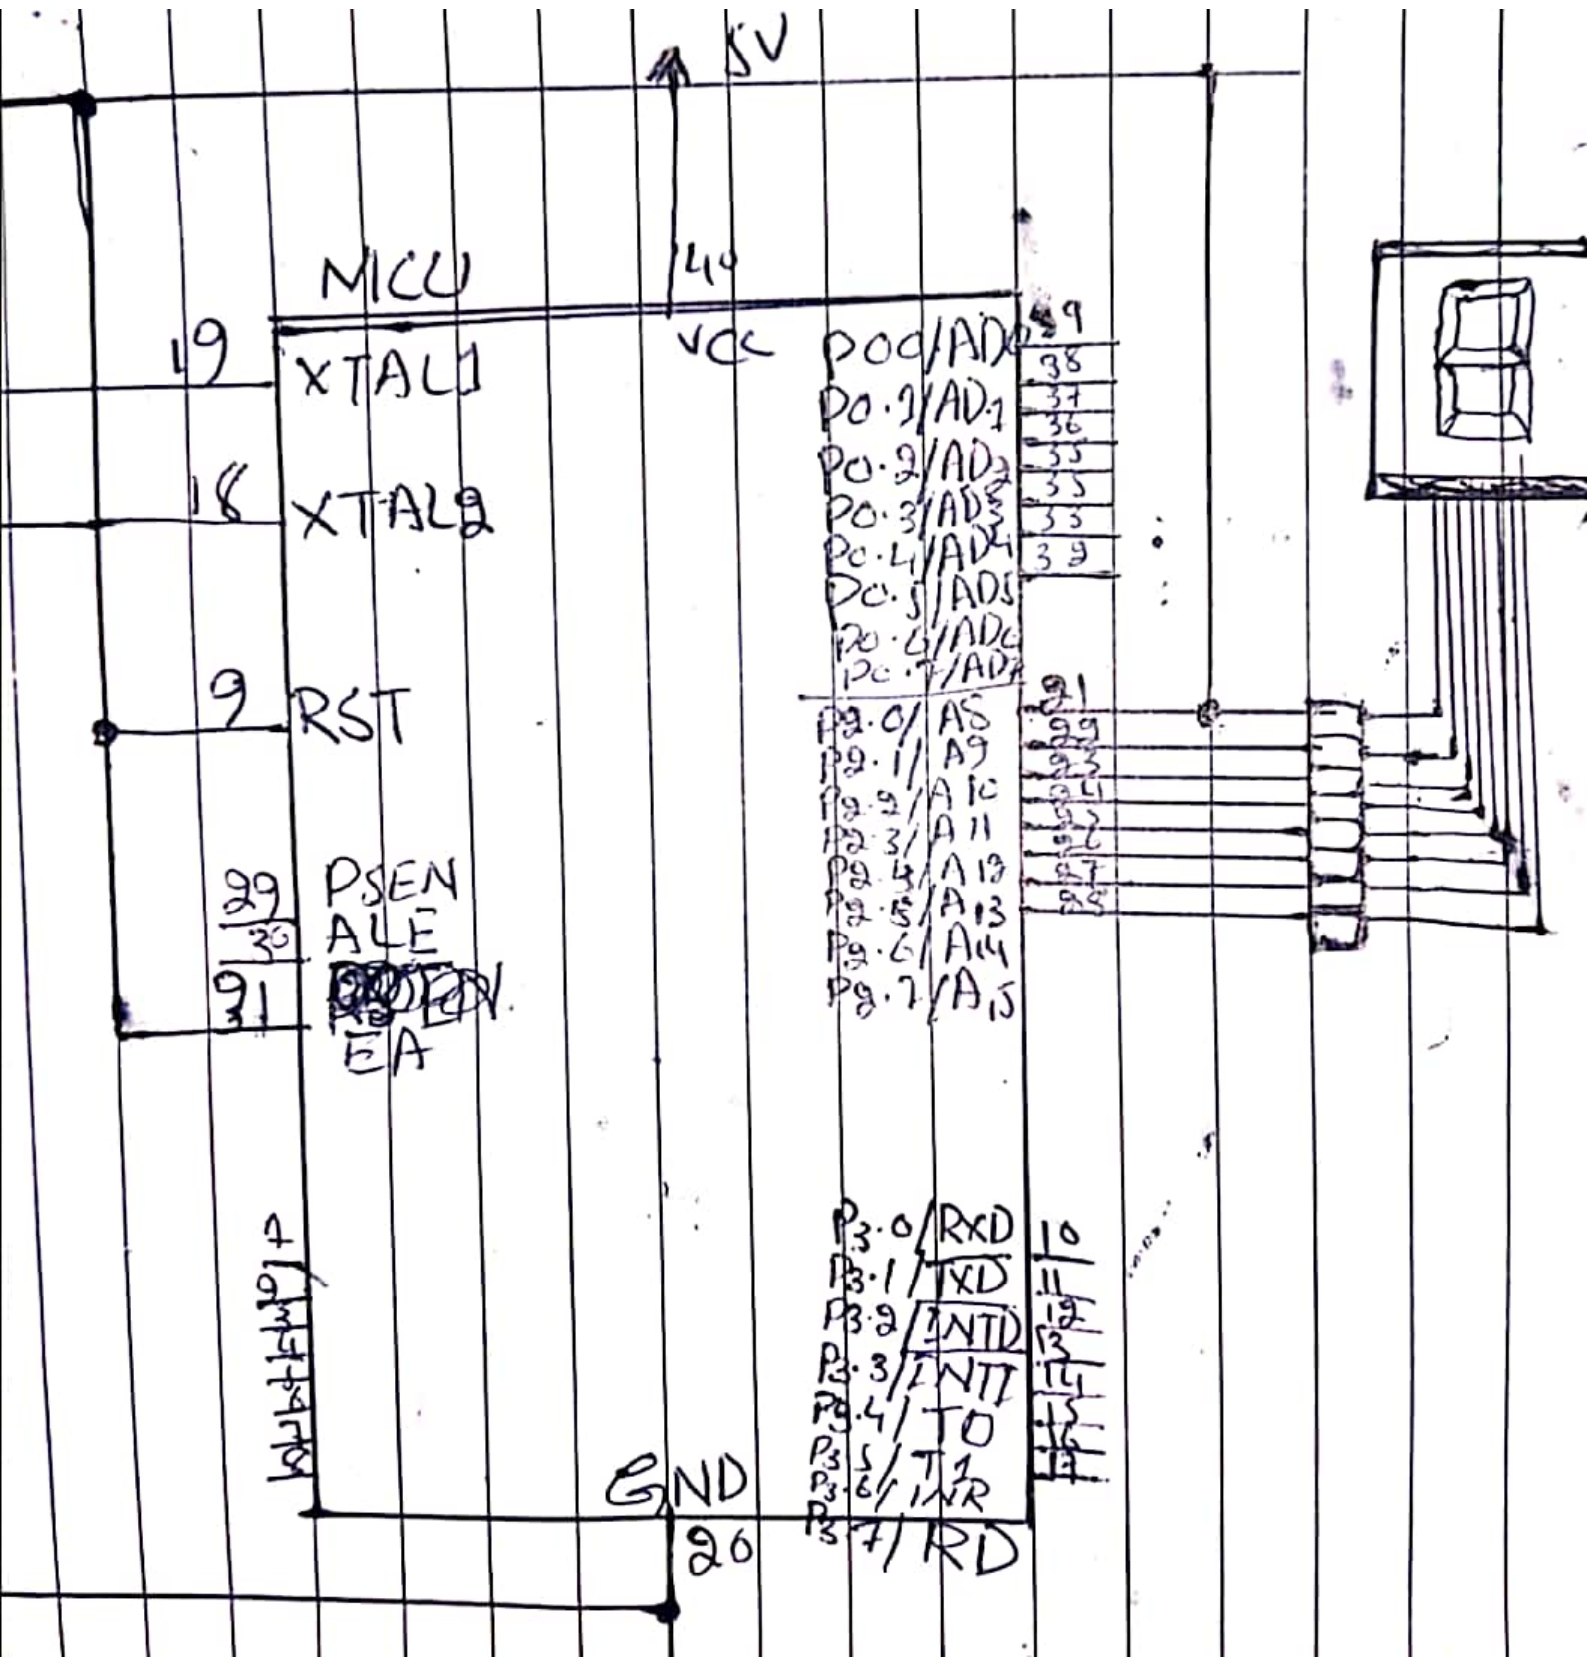 5V
MCU
40
VCC
19
XTAL1
18
XTAL2
9
RST
29
PSEN
30
ALE
31
EA
P00/AD0
39
P0.1/AD1
38
P0.2/AD2
37
P0.3/AD3
36
P0.4/AD4
35
P0.5/AD5
35
P0.6/AD6
33
P0.7/AD7
32
P2.0/A8
21
P2.1/A9
22
P2.2/A10
23
P2.3/A11
24
P2.4/A12
25
P2.5/A13
26
P2.6/A14
27
P2.7/A15
28
P3.0/RXD
10
P3.1/TXD
11
P3.2/INTD
12
P3.3/INT1
13
P3.4/T0
14
P3.5/T1
15
P3.6/INR
16
P3.7/RD
17
GND
20